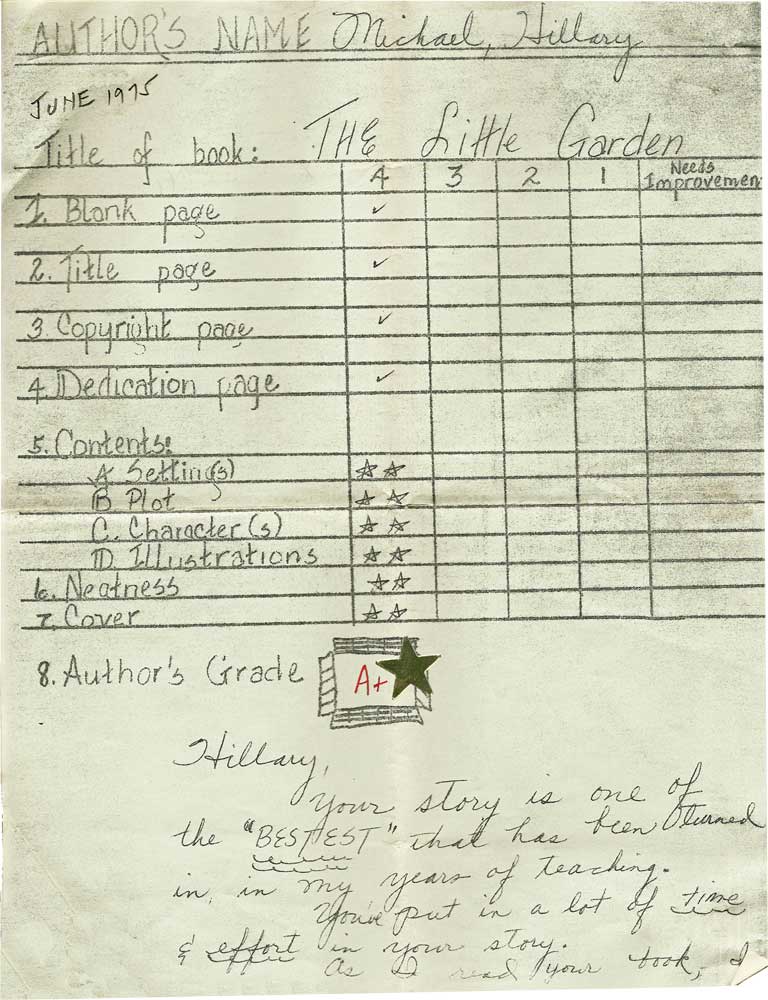 AUTHOR'S NAME Michael, Hillary
JUNE 1975
Title of book: THE Little Garden
4 3 2 1 Needs Improvemen
1. Blank page ✓
2. Title page ✓
3. Copyright page ✓
4. Dedication page ✓
5. Contents:
A Setting(s) ☆☆
B Plot ☆☆
C. Character(s) ☆☆
D. Illustrations ☆☆
6. Neatness ☆☆
7. Cover ☆☆
8. Author's Grade A+
Hillary,
Your story is one of
the "BESTEST" that has been turned
in, in my years of teaching.
You've put in a lot of time
& effort in your story.
As I read your book, I